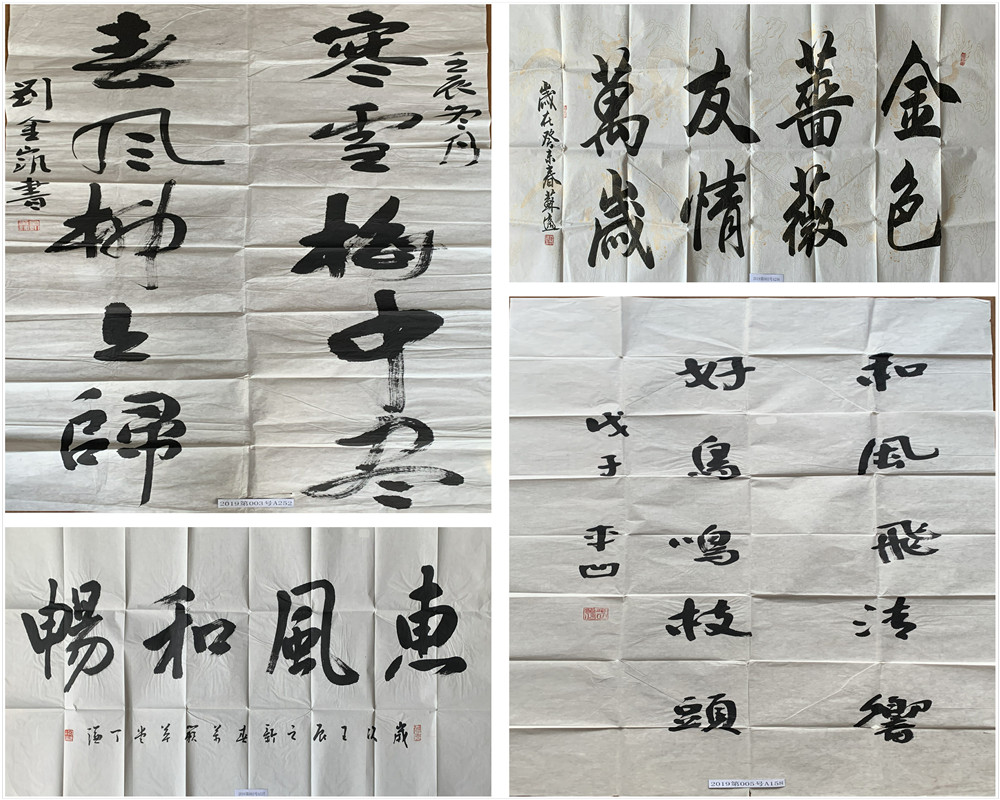 壬辰冬月
寒雪梅中尽
春风柳上歸
劉金凯書
2019第003号A252
金色
薔薇
友情
萬歲
歲在癸未春蘇適
惠風和暢
歲次壬辰之新春
丁謙
和風飛清響
好鳥鳴枝頭
戊子 平凹
2019第005号A158